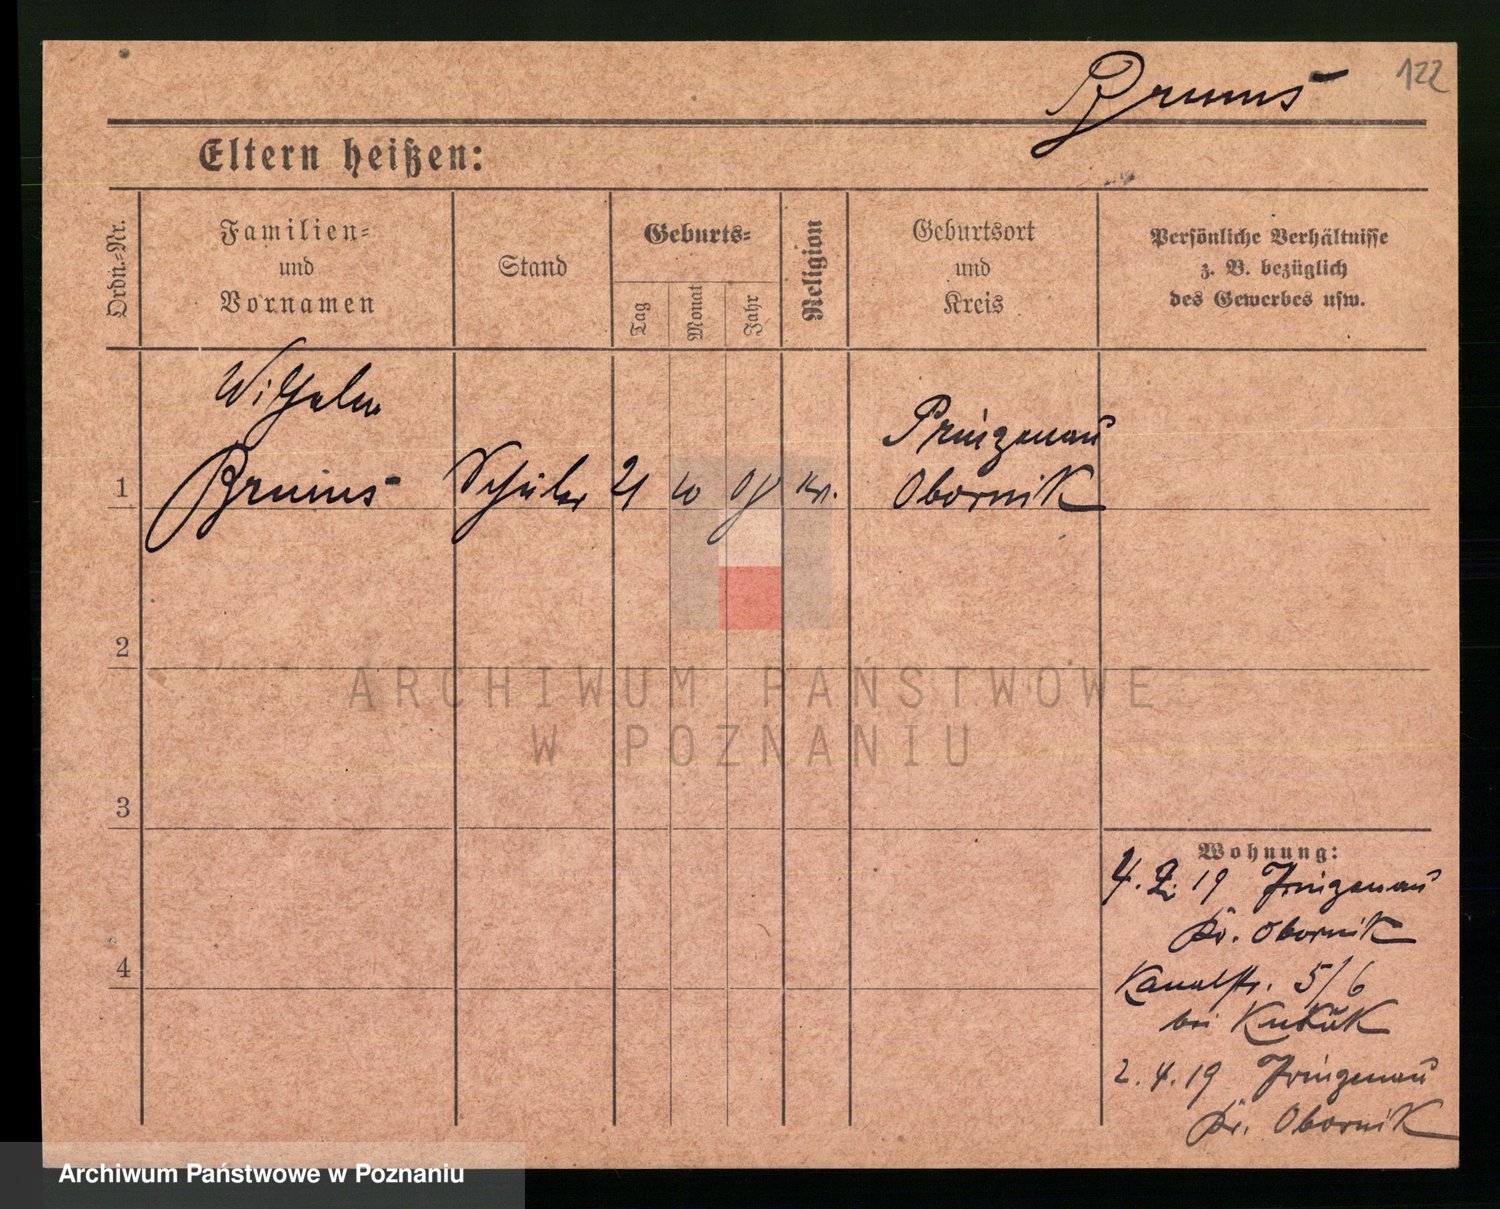 122
Bruns
Eltern heißen:
Ordn.-Nr.
Familien-
und
Vornamen
Stand
Geburts-
Tag
Monat
Jahr
Religion
Geburtsort
und
Kreis
Persönliche Verhältnisse
z. B. bezüglich
des Gewerbes usw.
Wilhelm
Prinzenau
1
Schüler 21 10
Obornik
2
ARCHIWUM PAŃSTWOWE
W POZNANIU
3
Wohnung:
4. 2. 19 Prinzenau
Kr. Obornik
4
Kanalstr. 5/6
bei Kukuk
2. 4. 19 Prinzenau
Kr. Obornik
Archiwum Państwowe w Poznaniu